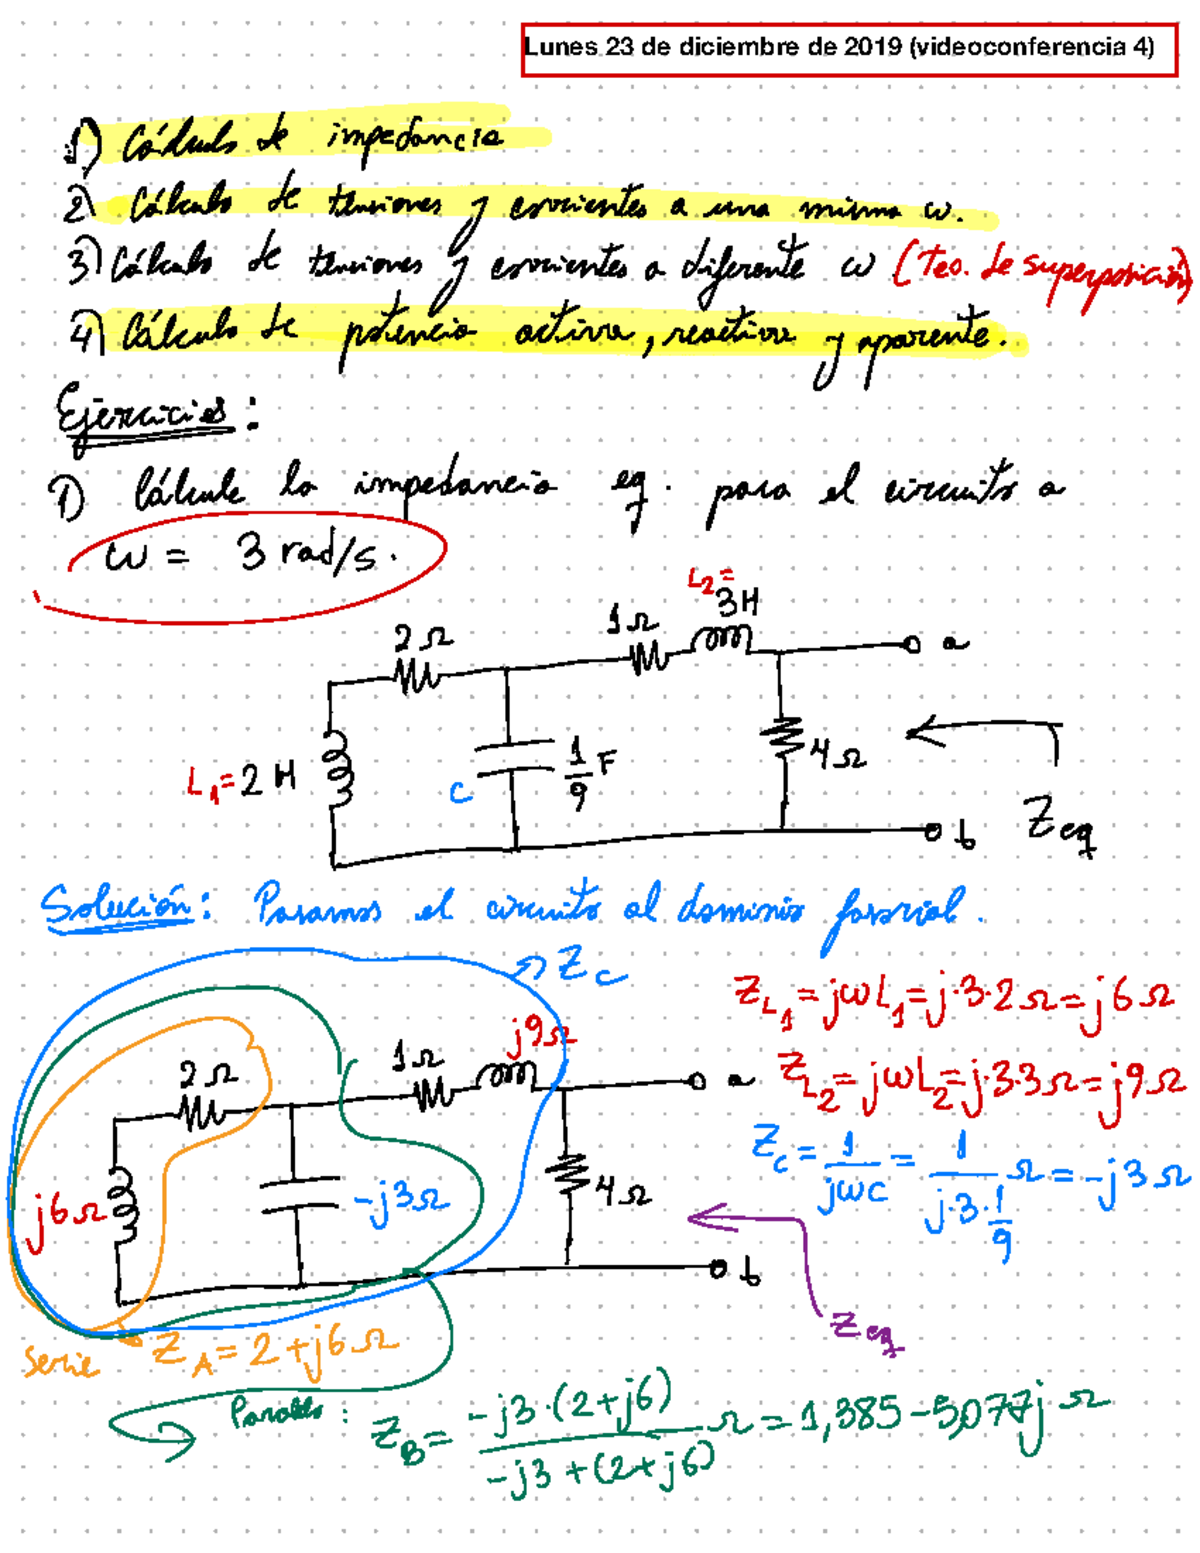 Lunes 23 de diciembre de 2019 (videoconferencia 4)
1) Cálculo de impedancia
2) Cálculo de tensiones y corrientes a una misma ω.
3) Cálculo de tensiones y corrientes a diferente ω (Teo. de superposición)
4) Cálculo de potencia activa, reactiva y aparente.
Ejercicios:
1) Cálcule la impedancia eq. para el circuito a
ω = 3 rad/s.
L₂=
3H
1Ω
2Ω
a
L₁=2H
C
1/9 F
4Ω
Zeq
b
Solución: Pasamos el circuito al dominio fasorial.
Zc
Z_L₁ = jωL₁ = j·3·2Ω = j6Ω
j9Ω
1Ω
2Ω
a
Z_L₂ = jωL₂ = j·3·3Ω = j9Ω
Zc = 1/jωC = 1/(j·3·1/9) Ω = -j3Ω
j6Ω
-j3Ω
4Ω
b
Zeq
Serie
Z_A = 2+j6Ω
Paralelo:
Z_B = -j3·(2+j6)/(-j3+(2+j6)) Ω = 1,385-5,077j Ω